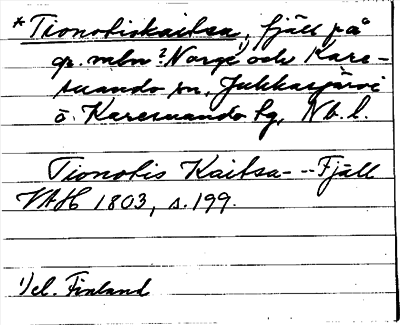 *Tionotiskaitsa, fjäll på
gr. mln ? Norge ¹) och Kare-
suando sn, Jukkasjärvi
ö. Karesuando tg, Nb. l.
Tionotis Kaitsa- -- Fjäll
VAH 1803, s. 199.
¹) el. Finland